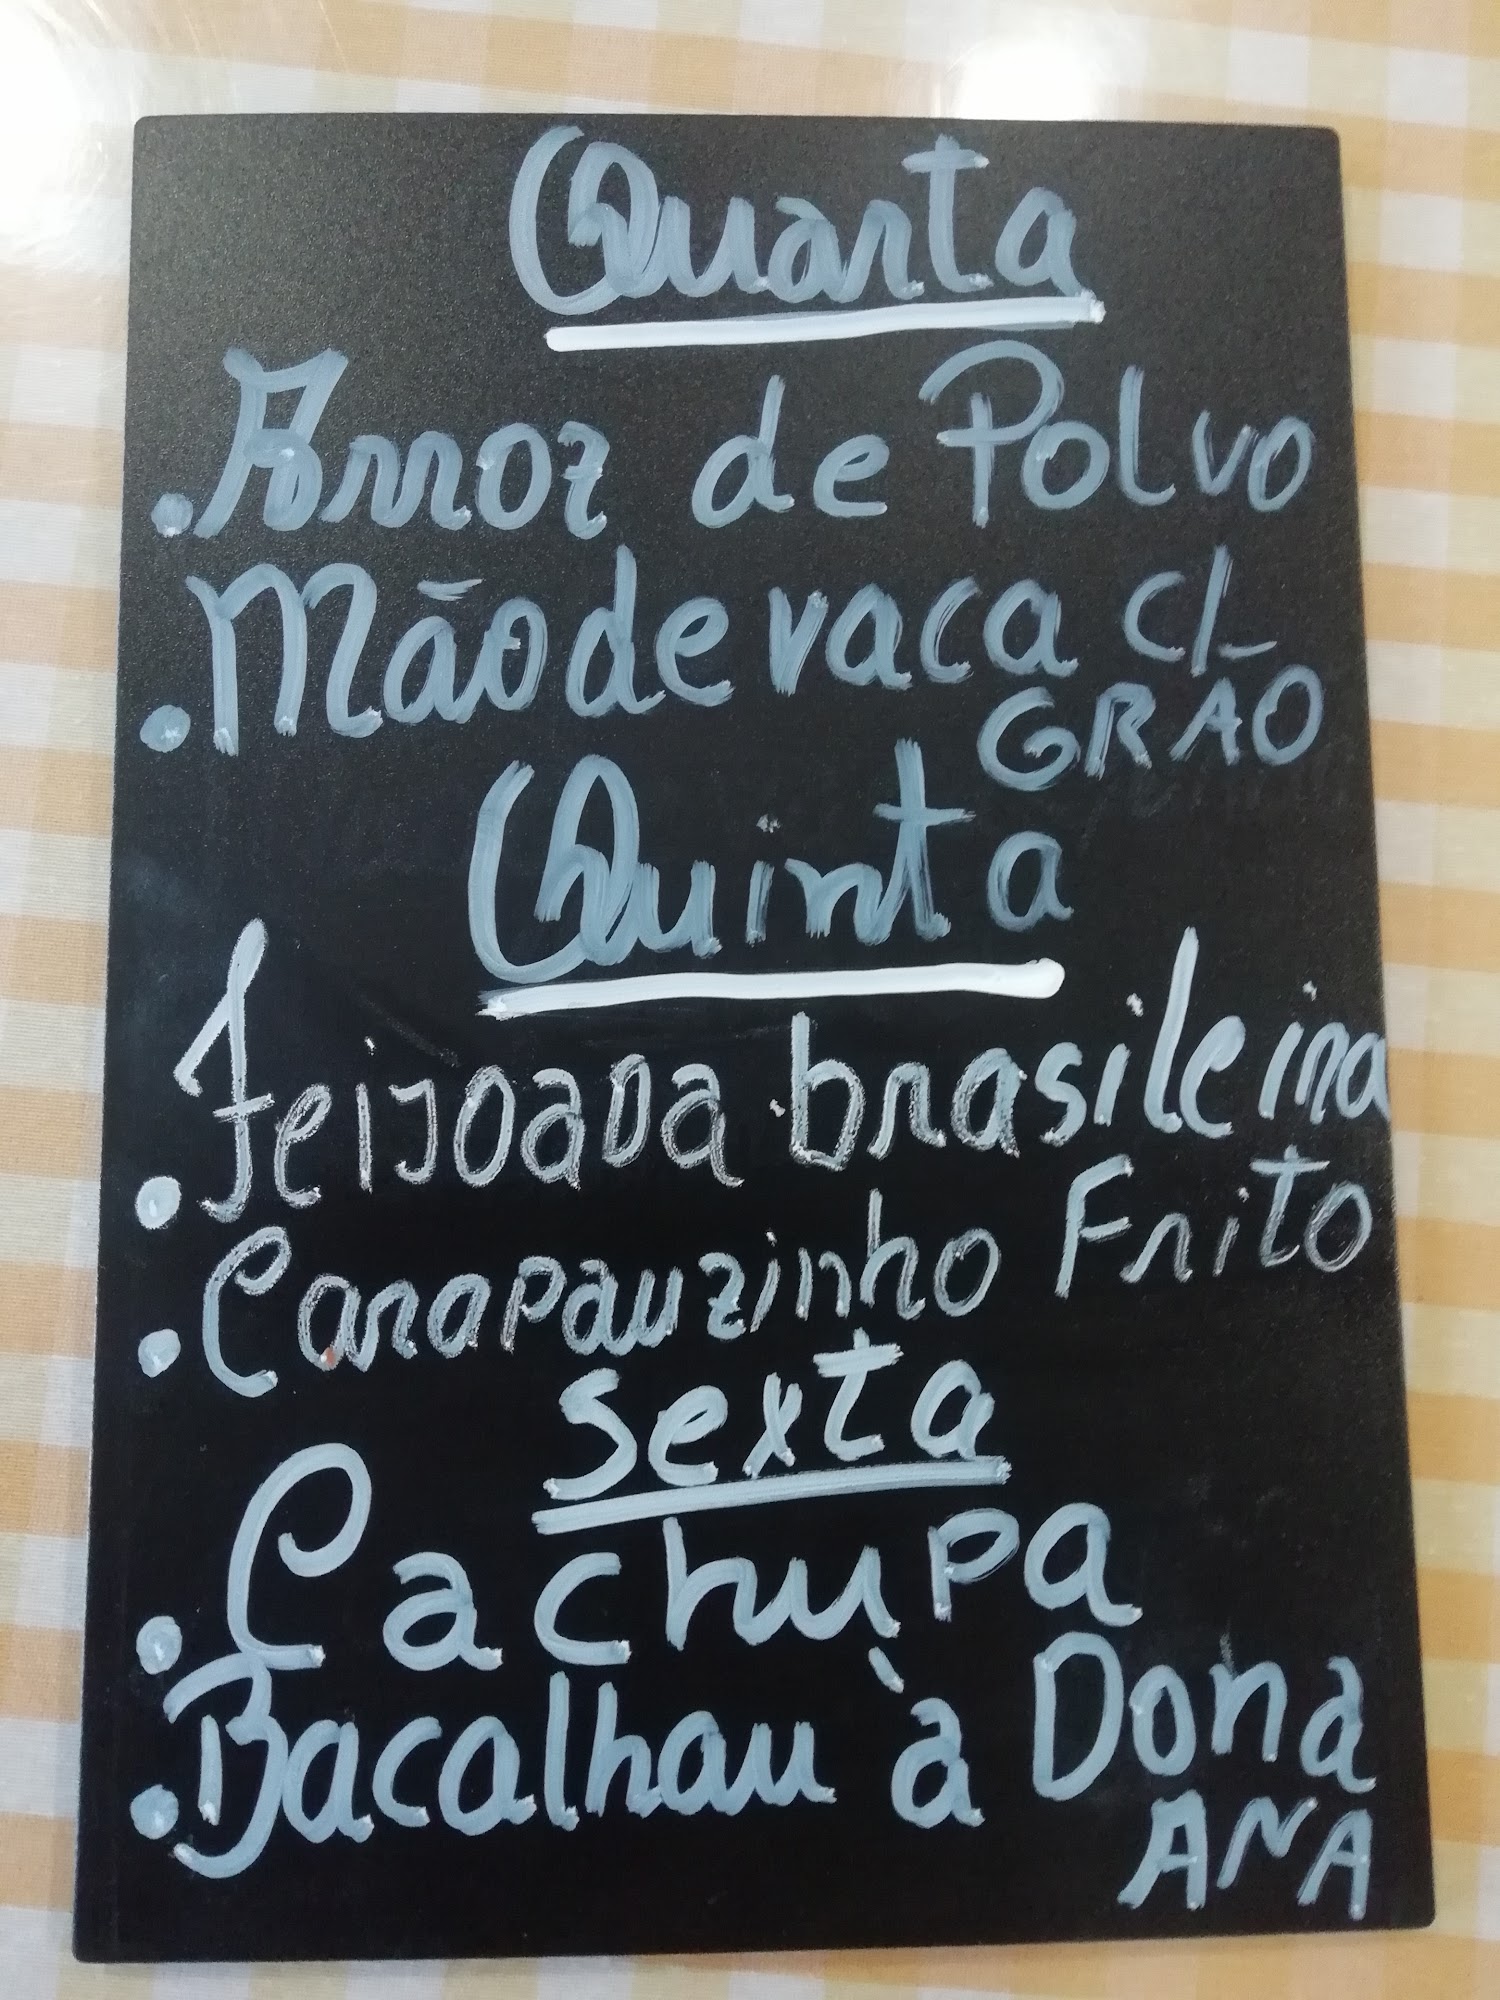 Quarta
. Arroz de Polvo
. Mão de vaca c/
GRÃO
Quinta
. Feijoada brasileira
. Carapauzinho Frito
sexta
. Cachupa
. Bacalhau à Dona
ANA